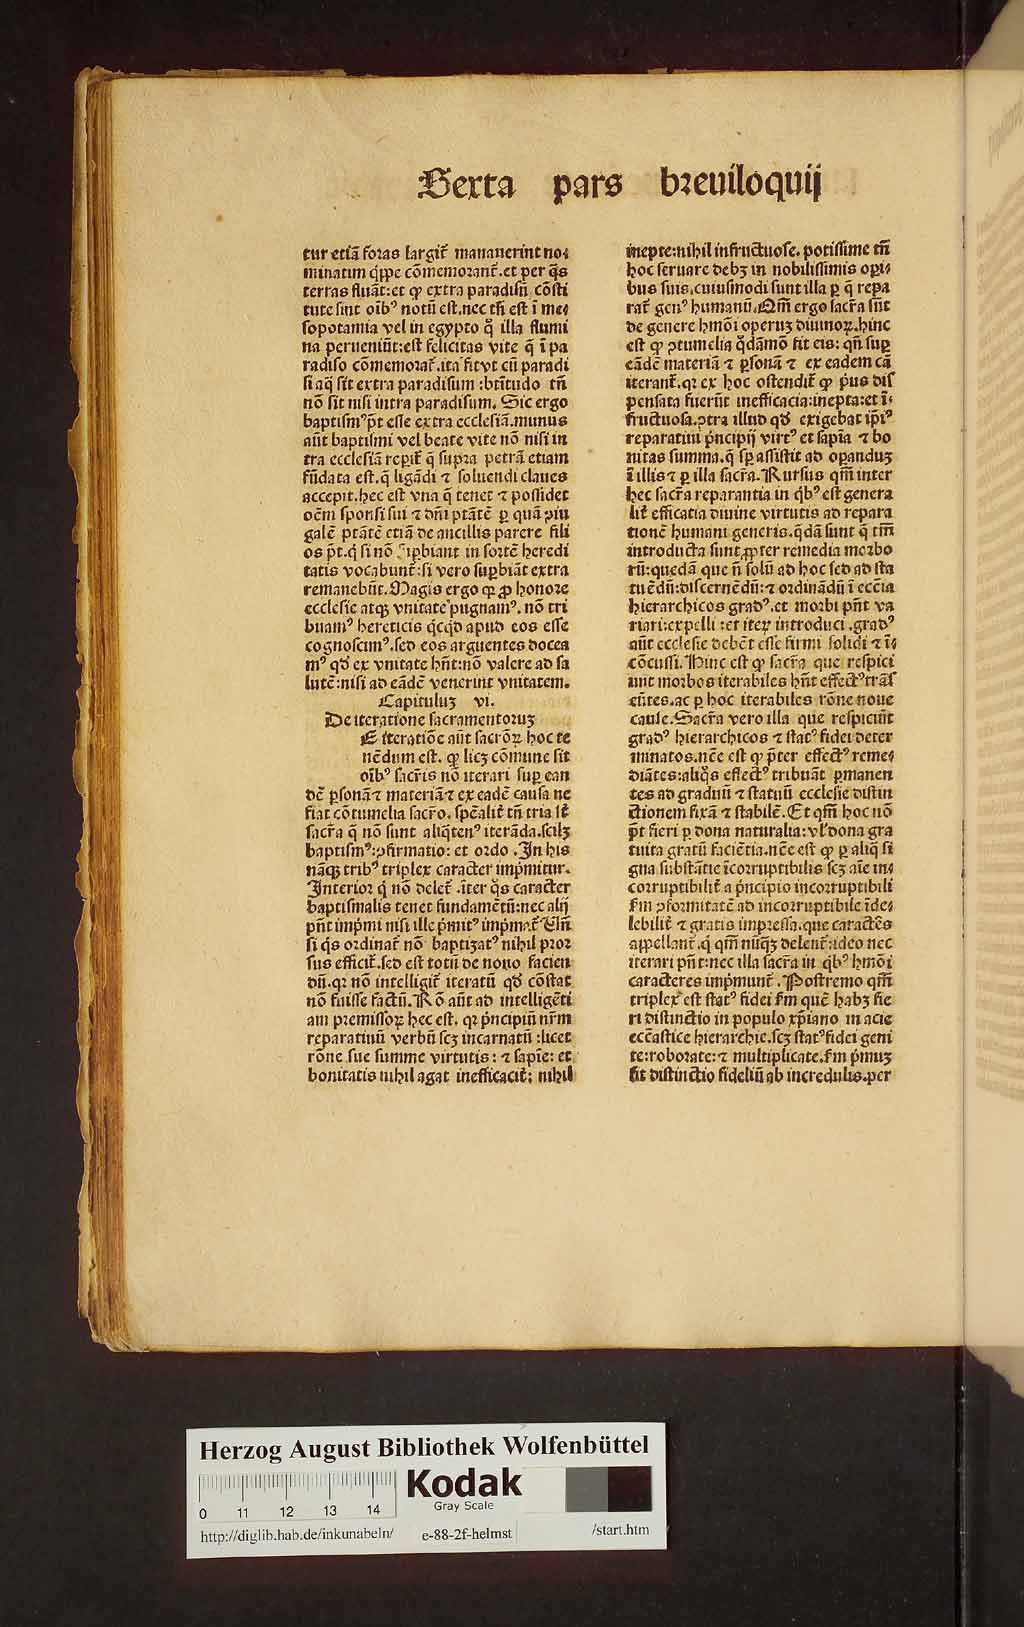 Sexta pars breuiloquij
tur etiā foras largit᷑ mananerint no⸗
minatim q̇ppe cōmemorant᷑.et per q̄s
terras fluāt:et ꝙ extra paradisū cōsti
tute sint oībꝰ notū est.nec tn̄ est ī me⸗
sopotamia vel in egypto qͦ illa flumi
na perueniūt:est felicitas vite q̄ ī pa
radiso cōmemorat᷑.ita fit vt cū paradi
si aq̄ sit extra paradisum :btītudo tn̄
nō sit nisi intra paradisum. Sic ergo
baptismꝰ pt̄ esse extra ecclesiā.munus
aūt baptismi vel beate vite nō nisi in
tra ecclesiā reperit᷑ q̄ supra petrā etiam
fūdata est.q̄ ligādi ⁊ soluendi claues
accepit.hec est vna q̄ tenet ⁊ possidet
oēm sponsi sui ⁊ dn̄i ptātē ꝑ quā ꝯiu
galē ptātē etiā de ancillis parere fili
os pt̄.q̇ si nō supbiant in sortē heredi
tatis vocabunt᷑:si vero supbiāt extra
remanebūt.Magis ergo qꝛ ꝓ honore
ecclesie atqꝫ vnitate pugnamꝰ. nō tri
buamꝰ hereticis q̇cq̇d apud eos esse
cognoscimꝰ.sed eos arguentes docea
mꝰ qd̓ ex vnitate hn̄t:nō valere ad sa
lutē:nisi ad eādē venerint vnitatem.
Capituluꝫ vi.
De iteratione sacramentoruꝫ
E iteratiōe aūt sacroꝝ hoc te
nēdum est. ꝙ licꝫ cōmune sit
oībꝰ sacr̄is nō iterari sup ean
dē ꝑsonā ⁊ materiā ⁊ ex eadē causa ne
fiat cōtumelia sacro. spēalit᷑ tn̄ tria st̄
sacr̄a q̄ nō sunt aliq̄tenꝰ iterāda.scilꝫ
baptismꝰ:ꝯfirmatio: et ordo .In his
nāqꝫ tribꝰ triplex caracter imp̓mitur.
Interior q̇ nō delet᷑ .iter q̄s caracter
baptismalis tenet fundamētū:nec alij
pn̄t imp̓mi nisi ille p̓mitꝰ imp̓mat᷑ Un̄
si q̇s ordinat᷑ nō baptizatꝰ nihil pror
sus efficit᷑.sed est totū de nouo facien
dū.qꝛ nō intelligit᷑ iteratū qd̓ cōstat
nō fuisse factū. Rō aūt ad intelligēti
am premissoꝝ hec est. qꝛ p̓ncipiū nr̄m
reparatiuū verbū scꝫ incarnatū :licet
rōne sue summe virtutis: ⁊ sapīe: et
bonitatis nihil agat inefficacit᷑: nihil
inepte:nihil infructuose. potissime tn̄
hoc seruare debꝫ in nobilissimis opi⸗
bus suis.cuiusmodi sunt illa ꝑ q̄ repa
rat᷑ genꝰ humanū.Qm̄ ergo sacr̄a sūt
de genere hmōi operuꝫ diuinoꝝ.hinc
est ꝙ ꝯtumelia q̄dāmō fit eis: qn̄ sup
eādē materiā ⁊ ꝑsonā ⁊ ex eadem cā
iterant᷑.qꝛ ex hoc ostendit᷑ ꝙ p̓us dis
pensata fuerūt inefficacia:inepta:et ī⸗
fructuosa.ꝯtra illud qd̓ exigebat ip̄iꝰ
reparatiui p̓ncipij virtꝰ et sapīa ⁊ bo
nitas summa.q̄ sp assistit ad opanduꝫ
ī illis ⁊ ꝑ illa sacr̄a. Rursus qm̄ inter
hec sacr̄a reparantia in q̇bꝰ est genera
lit᷑ efficatia diuine virtutis ad repara
tionē humani generis.q̄dā sunt q̄ tm̄
introducta sunt ꝓpter remedia morbo
rū:quedā que n̄ solū ad hoc sed ad sta
tuēdū:discernēdū:⁊ ordināndū ī eccīa
hierarchicos gradꝰ.et morbi pn̄t va
riari:expelli :et iteꝝ introduci .gradꝰ
aūt ecclesie debēt esse firmi solidi ⁊ ī⸗
cōcussi. Hinc est ꝙ sacr̄a que respici
unt morbos iterabiles hn̄t effectꝰ trās
eūtes.ac ꝑ hoc iterabiles rōne noue
cause.Sacr̄a vero illa que respiciūt
gradꝰ hierarchicos ⁊ statꝰ fidei deter
minatos.nēe est ꝙ p̄ter effectꝰ reme⸗
diātes:aliq̄s effectꝰ tribuāt ꝑmanen
tes ad graduū ⁊ statuū ecclesie distin
ctionem fixā ⁊ stabilē. Et qm̄ hoc nō
pt̄ fieri ꝑ dona naturalia: vl̓ dona gra
tuita gratū faciētia.nēe est ꝙ ꝑ aliq̄ si
gna substātie īcorruptibilis scꝫ aīe in⸗
corruptibilit᷑ a p̓ncipio incorruptibili
fm ꝯformitatē ad incorruptibile īde⸗
lebilit᷑ ⁊ gratis impressa.que caractēs
appellant᷑.q̇ qm̄ nūqꝫ delent᷑:ideo nec
iterari pn̄t:nec illa sacr̄a in q̇bꝰ hmōi
caracteres imp̓munt᷑ . Postremo qm̄
triplex est statꝰ fidei fm quē habꝫ fie
ri distinctio in populo xp̄iano in acie
eccāstice hierarchie.scꝫ statꝰ fidei geni
te:roborate:⁊ multiplicate.fm p̓muꝫ
fit distinctio fideliū ab incredulis.per
Herzog August Bibliothek Wolfenbüttel
0 11 12 13 14
Kodak
Gray Scale
http://diglib.hab.de/inkunabeln/ e-88-2f-helmst /start.htm